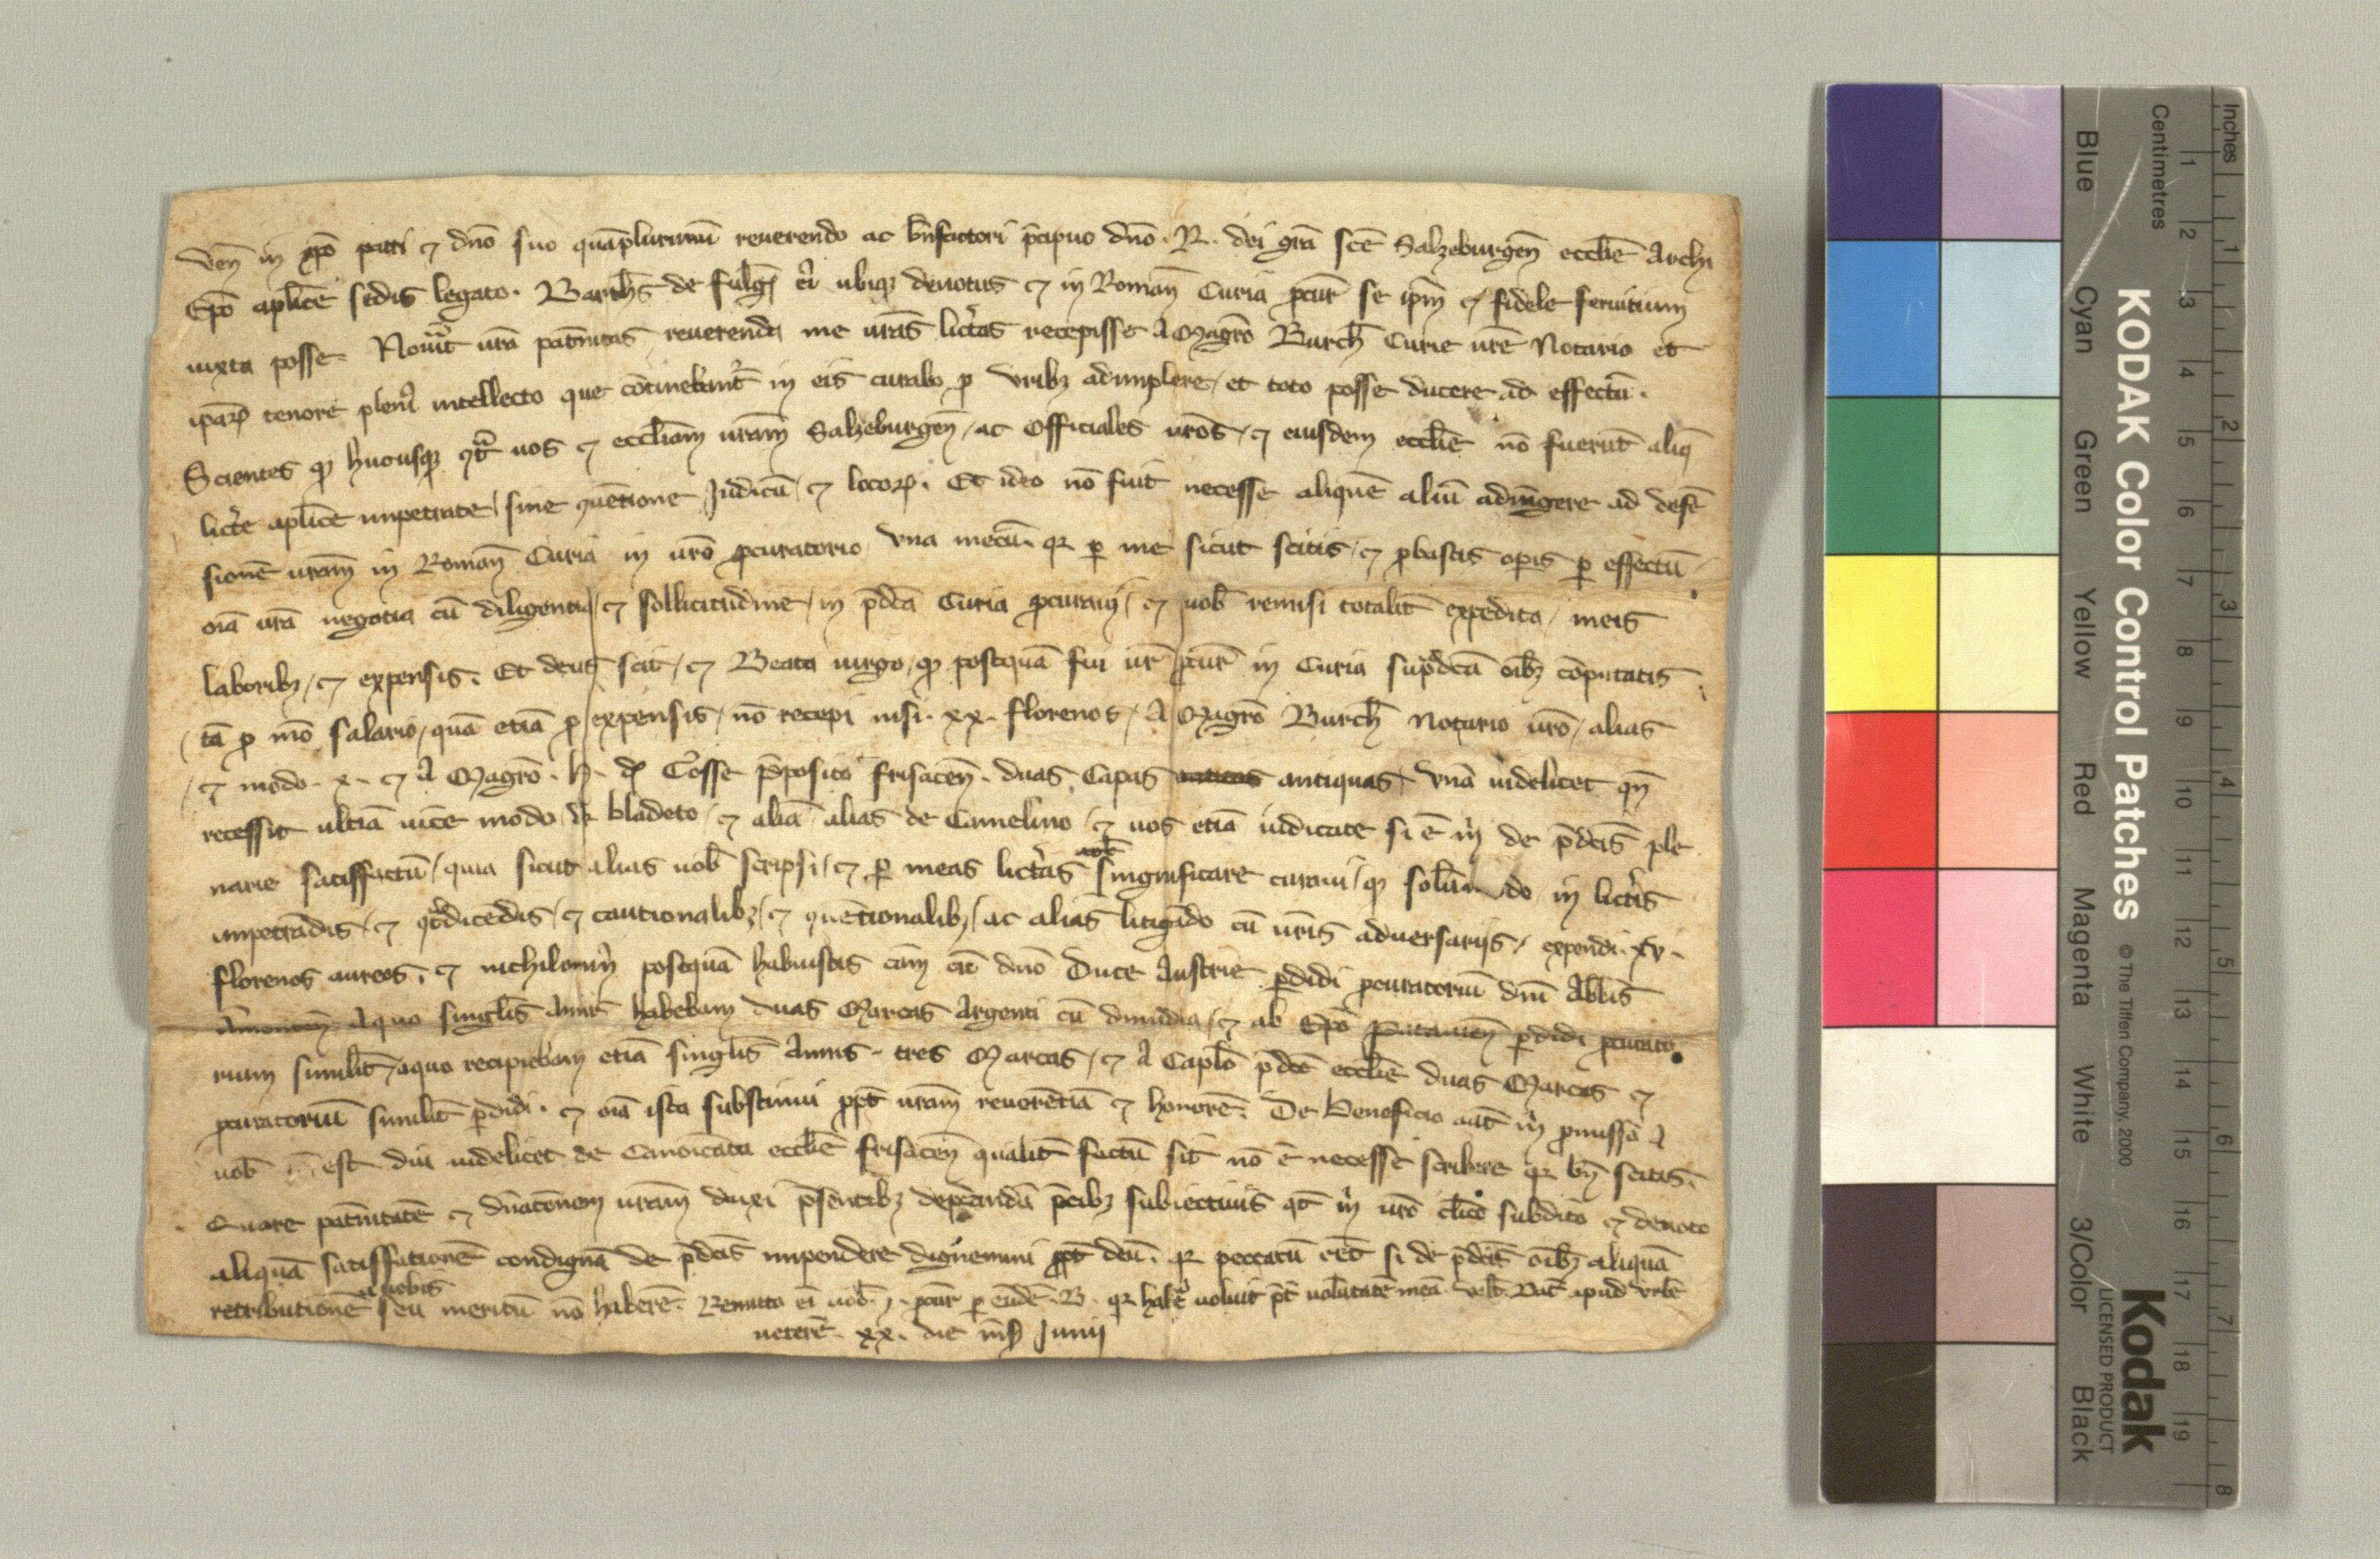 Ven̄ in xp̄o patri ⁊ dn̄o suo quāplurimū reuerendo ac bn̄factori p̄cipuo dn̄o .R. dei gr̄a sc̄e Salzeburgen̄ eccl̄ie Archi
Ep̄o apl̄ice sedis legato. Barth̄s de fulḡ ei ubiq; deuotus ⁊ in Roman̄ Curia ꝓcur̄ se ip̄m ⁊ fidele seruitium
iuxta posse. Nou̾it ur̄a pat̄nitas reuerenda me ur̄as lict̾as recepisse A Magr̄o Burch̄ Curie ur̄e Notario et
ipaꝝ tenore pleni᷒ intellecto que cōtinebant̾ in eis curabo ꝓ virib; adimplere / et toto posse ducere ad effectū.
Scientes ꝙ hucusq; ꝯt̾ uos ⁊ eccl̄iam ur̄am Salzeburgen̄ / ac Officiales ur̄os / ⁊ eiusdem eccl̄ie nō fuerūt aliq̄
lict̾e apl̄ice impetrate / sine ꝯuētione Judicū / ⁊ locoꝝ. Et ideo nō fuit necesse aliquē aliū adiūgere ad defē
sionē ur̄am in Roman̄ Curia in ur̄o ꝓcuratorio vna mecū. qr ꝑ me sicut scitis / ⁊ ꝓbastis op̄is ꝑ effectū
oīa ur̄a negotia cū diligentia / ⁊ sollicitudine / in p̄dc̄a Curia ꝓcuraui / ⁊ uob̄ remisi totalit̄ expedita / meis
laborib; / ⁊ expensis. Et deus scit / ⁊ Beata uirgo / ꝙ postquā fui ur̄ ꝓcur̄ in Curia sup̄dc̄a oīb; cōputatis
tā ꝓ mō salario / quā etiā ꝓ expensis / nō recepi nisi .xx. florenos / A Magr̄o Burch̄ Notario ur̄o / alias
⁊ modo .x. ⁊ A Magr̄o .H. de Cosse p̄posito frisacen̄. duas Capas antiquas / vnā uidelicet qn̄
recessit ultīa uice modo de bladeto / ⁊ aliā alias de Camelino / ⁊ uos etiā iudicate si ē m̄ de p̄dc̄is ple
narie satisfactū / quia sicut alias uob̄ scripsi / ⁊ ꝑ meas lict̾as singnificare curaui / ꝙ in lict̾is
impetrādis / ⁊ ꝯt̾dicēdis / ⁊ cautionalib; / ⁊ ꝯuētionalib; / ac alias litigādo cū ur̄is aduersarijs / expendi .xv.
florenos aureos. ⁊ nichilomin᷒ postquā habuistis cām cū dn̄o Duce Austrie ꝑdidi ꝓcuratoriū dn̄i Abb̄is
Aquo singl̄is Annis habebam duas Marcas Argenti cū dimidia / ⁊ ab Ep̄o ꝑdidi ꝓcurato
rium similit̄ / aquo recipiebam etiā singl̄is Annis .tres Marcas / ⁊ A Capl̄o p̄dc̄e eccl̄ie duas Marcas ⁊
ꝓcuratoriū similit̄ ꝑdidi. ⁊ oīa ista substinui ꝓpt̄ ur̄am reuerētiā ⁊ honorē. De Beneficio aut̄ m̄ ꝓmisso A
uob̄ est diu uidelicet de Canonicatu eccl̄ie frisacen̄ qualit̄ factū sit nō ē necesse scribere qr bn̄ scitis.
Quare pat̄nitatē ⁊ dn̄atōnem ur̄am duxi p̄sentib; dep̄candā p̄cib; subiectiuis qt̄ m̄ ur̄o cl̄ico subdito ⁊ deuoto
aliquā satisfationē condignā de p̄dc̄is impendere dignemini ꝓpt̄ deū. qr peccatū eēt si de p̄dc̄is oīb; aliquā
retributionē a uobis seu meritū nō haberē. Remitto ei uob̄ ꝓcur̄ ꝑ eūdē .B. qr habē uoluit p̄t uolūtatē meā. Val̄. Dat̄ apud vrbē
ueterē .xx. die mēs Junij